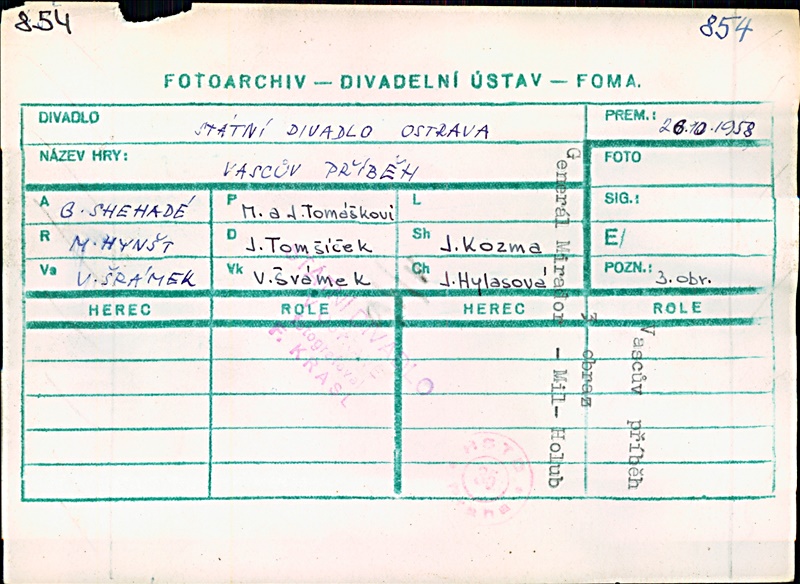 854
854
FOTOARCHIV — DIVADELNÍ ÚSTAV — FOMA.
DIVADLO STÁTNÍ DIVADLO OSTRAVA
PREM.: 26.10.1958
NÁZEV HRY: VASCŮV PŘÍBĚH
FOTO
A G. SHEHADÉ
P M. a J. Tomáškovi
L
SIG.:
R M. HYNŠT
D J. Tomšíček
Sh J. Kozma
E/
Va V. ŠRÁMEK
Vk V. Švámek
Ch J. Hylasová
POZN.: 3. obr.
HEREC ROLE HEREC ROLE
Vascův příběh
3 obraz
Generál Mirador - Mil- Holub
STÁTNÍ DIVADLO
F. KRASL